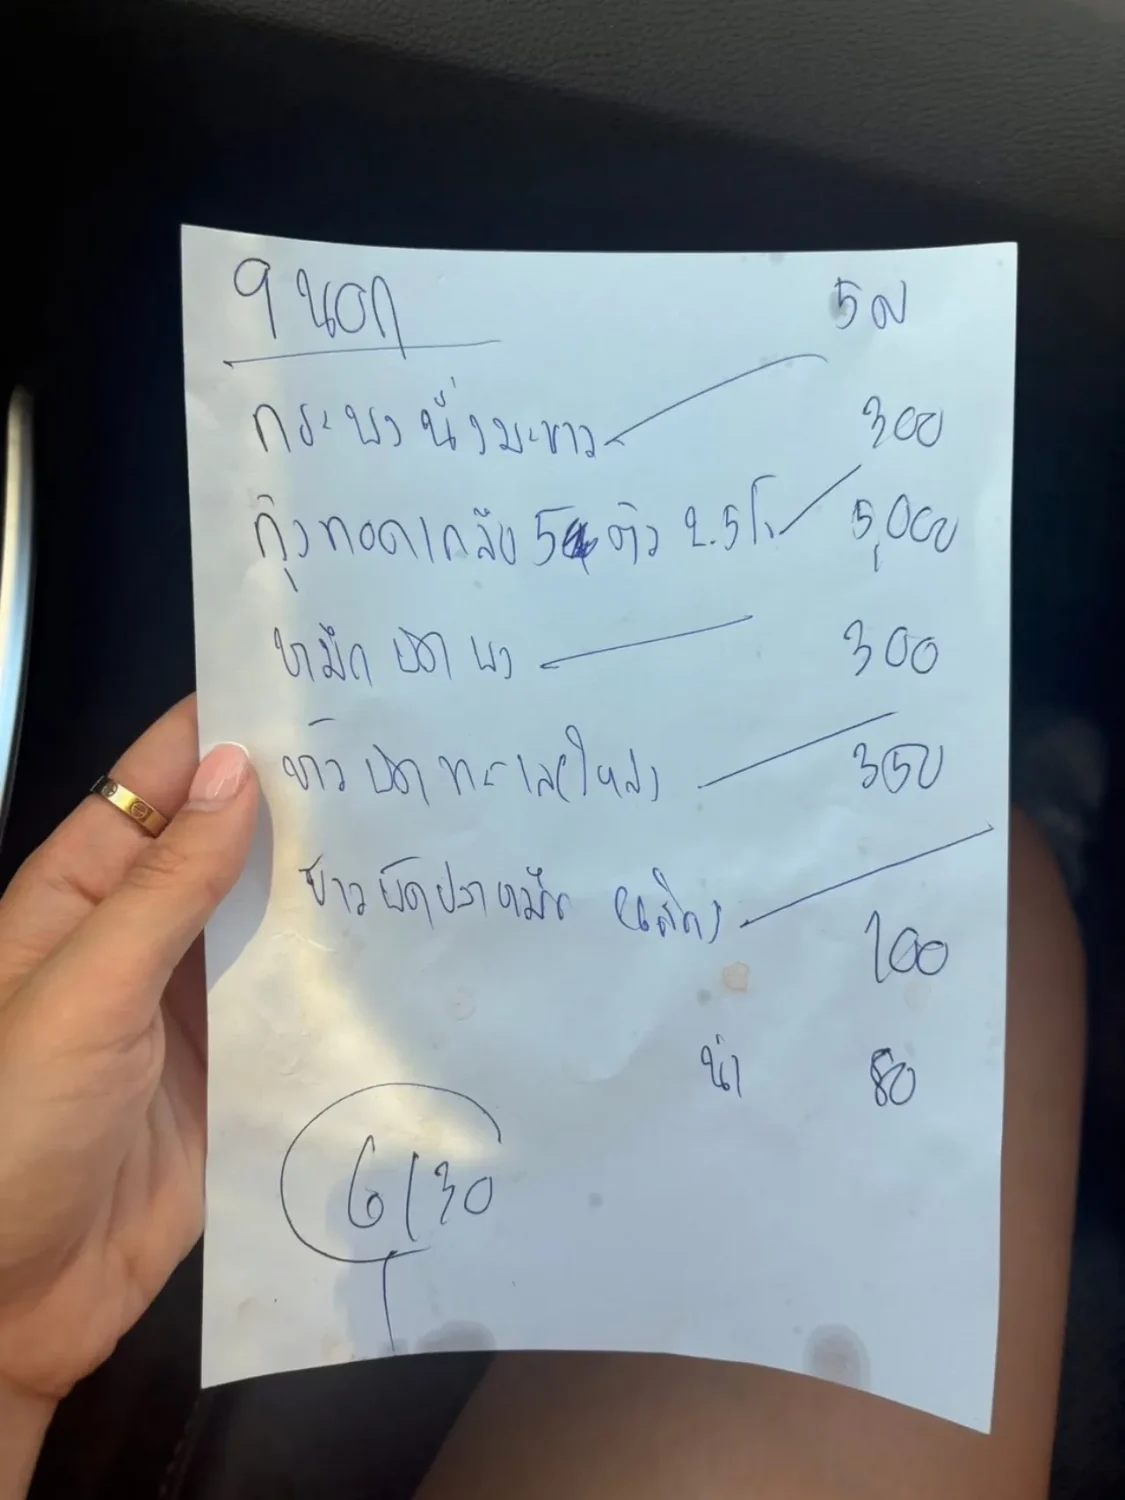 9 นอก 5 ค
กระพงนึ่งมะนาว 300
กุ้งทอดเกลือ 5 ตัว 2.5 โล 5,000
หมึกผัดผง 300
ข้าวผัดทะเล (ใหญ่) 350
ข้าวผัดปลาหมึก (เล็ก) 100
น้ำ 80
6130